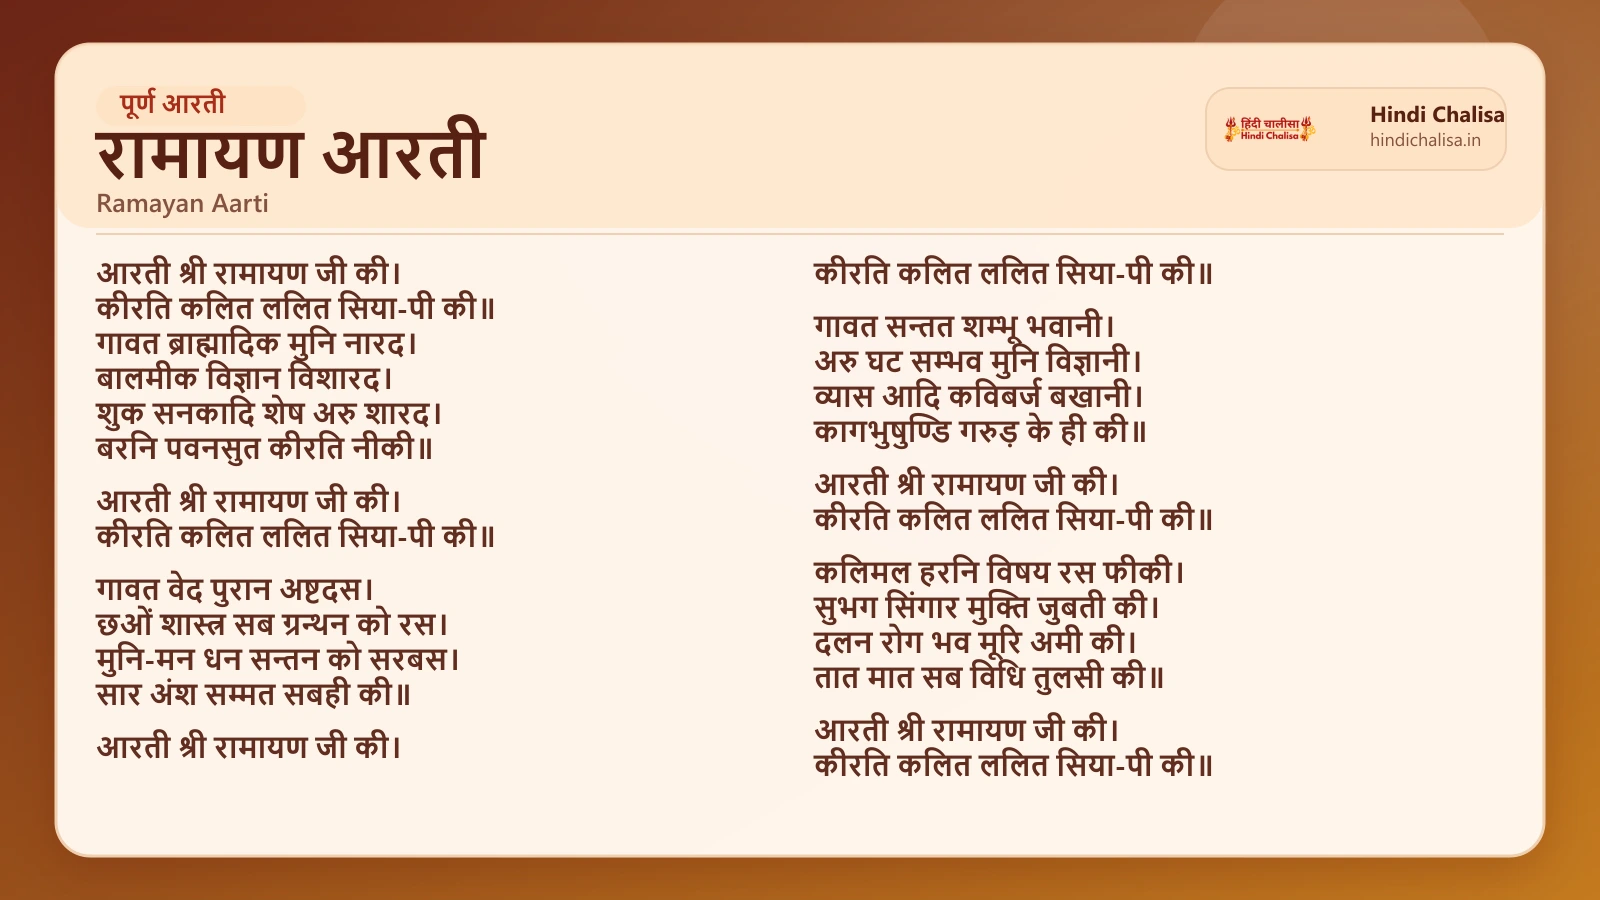 पूर्ण आरती
रामायण आरती
Ramayan Aarti
हिंदी चालीसा
Hindi Chalisa
Hindi Chalisa
hindichalisa.in
आरती श्री रामायण जी की।
कीरति कलित ललित सिया-पी की॥
गावत ब्राह्मादिक मुनि नारद।
बालमीक विज्ञान विशारद।
शुक सनकादि शेष अरु शारद।
बरनि पवनसुत कीरति नीकी॥
आरती श्री रामायण जी की।
कीरति कलित ललित सिया-पी की॥
गावत वेद पुरान अष्टदस।
छओं शास्त्र सब ग्रन्थन को रस।
मुनि-मन धन सन्तन को सरबस।
सार अंश सम्मत सबही की॥
आरती श्री रामायण जी की।
कीरति कलित ललित सिया-पी की॥
गावत सन्तत शम्भू भवानी।
अरु घट सम्भव मुनि विज्ञानी।
व्यास आदि कविबर्ज बखानी।
कागभुषुण्डि गरुड़ के ही की॥
आरती श्री रामायण जी की।
कीरति कलित ललित सिया-पी की॥
कलिमल हरनि विषय रस फीकी।
सुभग सिंगार मुक्ति जुबती की।
दलन रोग भव मूरि अमी की।
तात मात सब विधि तुलसी की॥
आरती श्री रामायण जी की।
कीरति कलित ललित सिया-पी की॥